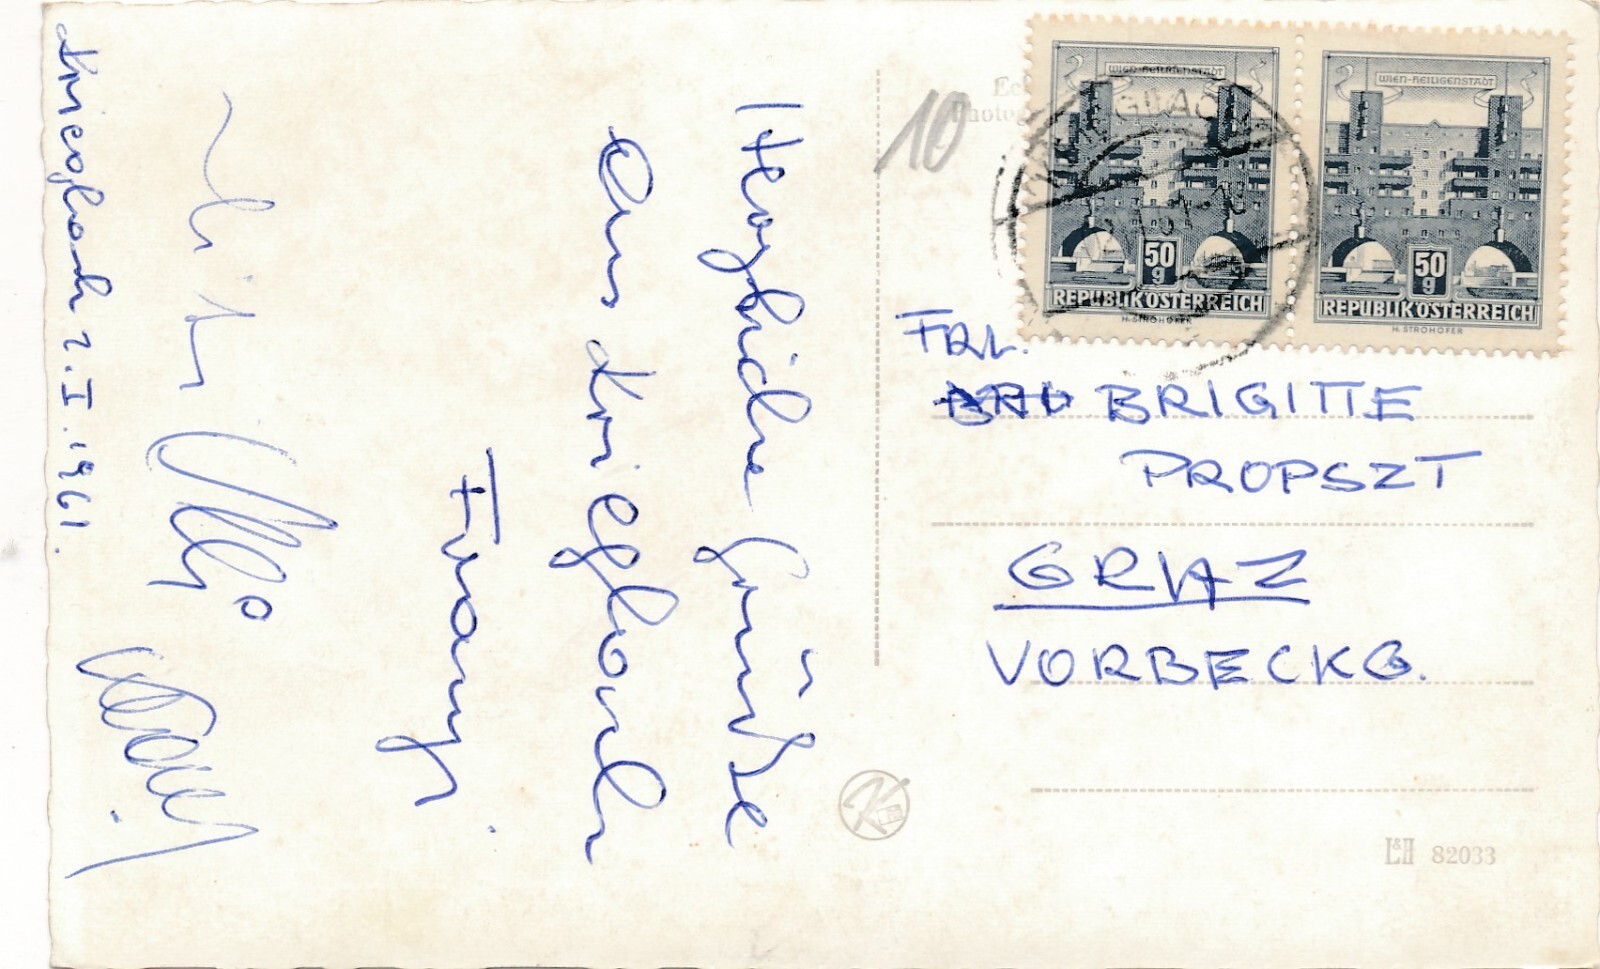 Krieglach 2.I.1961.
Herzliche Grüße
aus Krieglach
Franz
10
WIEN-HEILIGENSTADT
50
g
REPUBLIK ÖSTERREICH
H. STROHOFER
WIEN-HEILIGENSTADT
50
g
REPUBLIK ÖSTERREICH
H. STROHOFER
FRL.
BRIGITTE
PROPSZT
GRAZ
VORBECKG.
K
L&H 82033